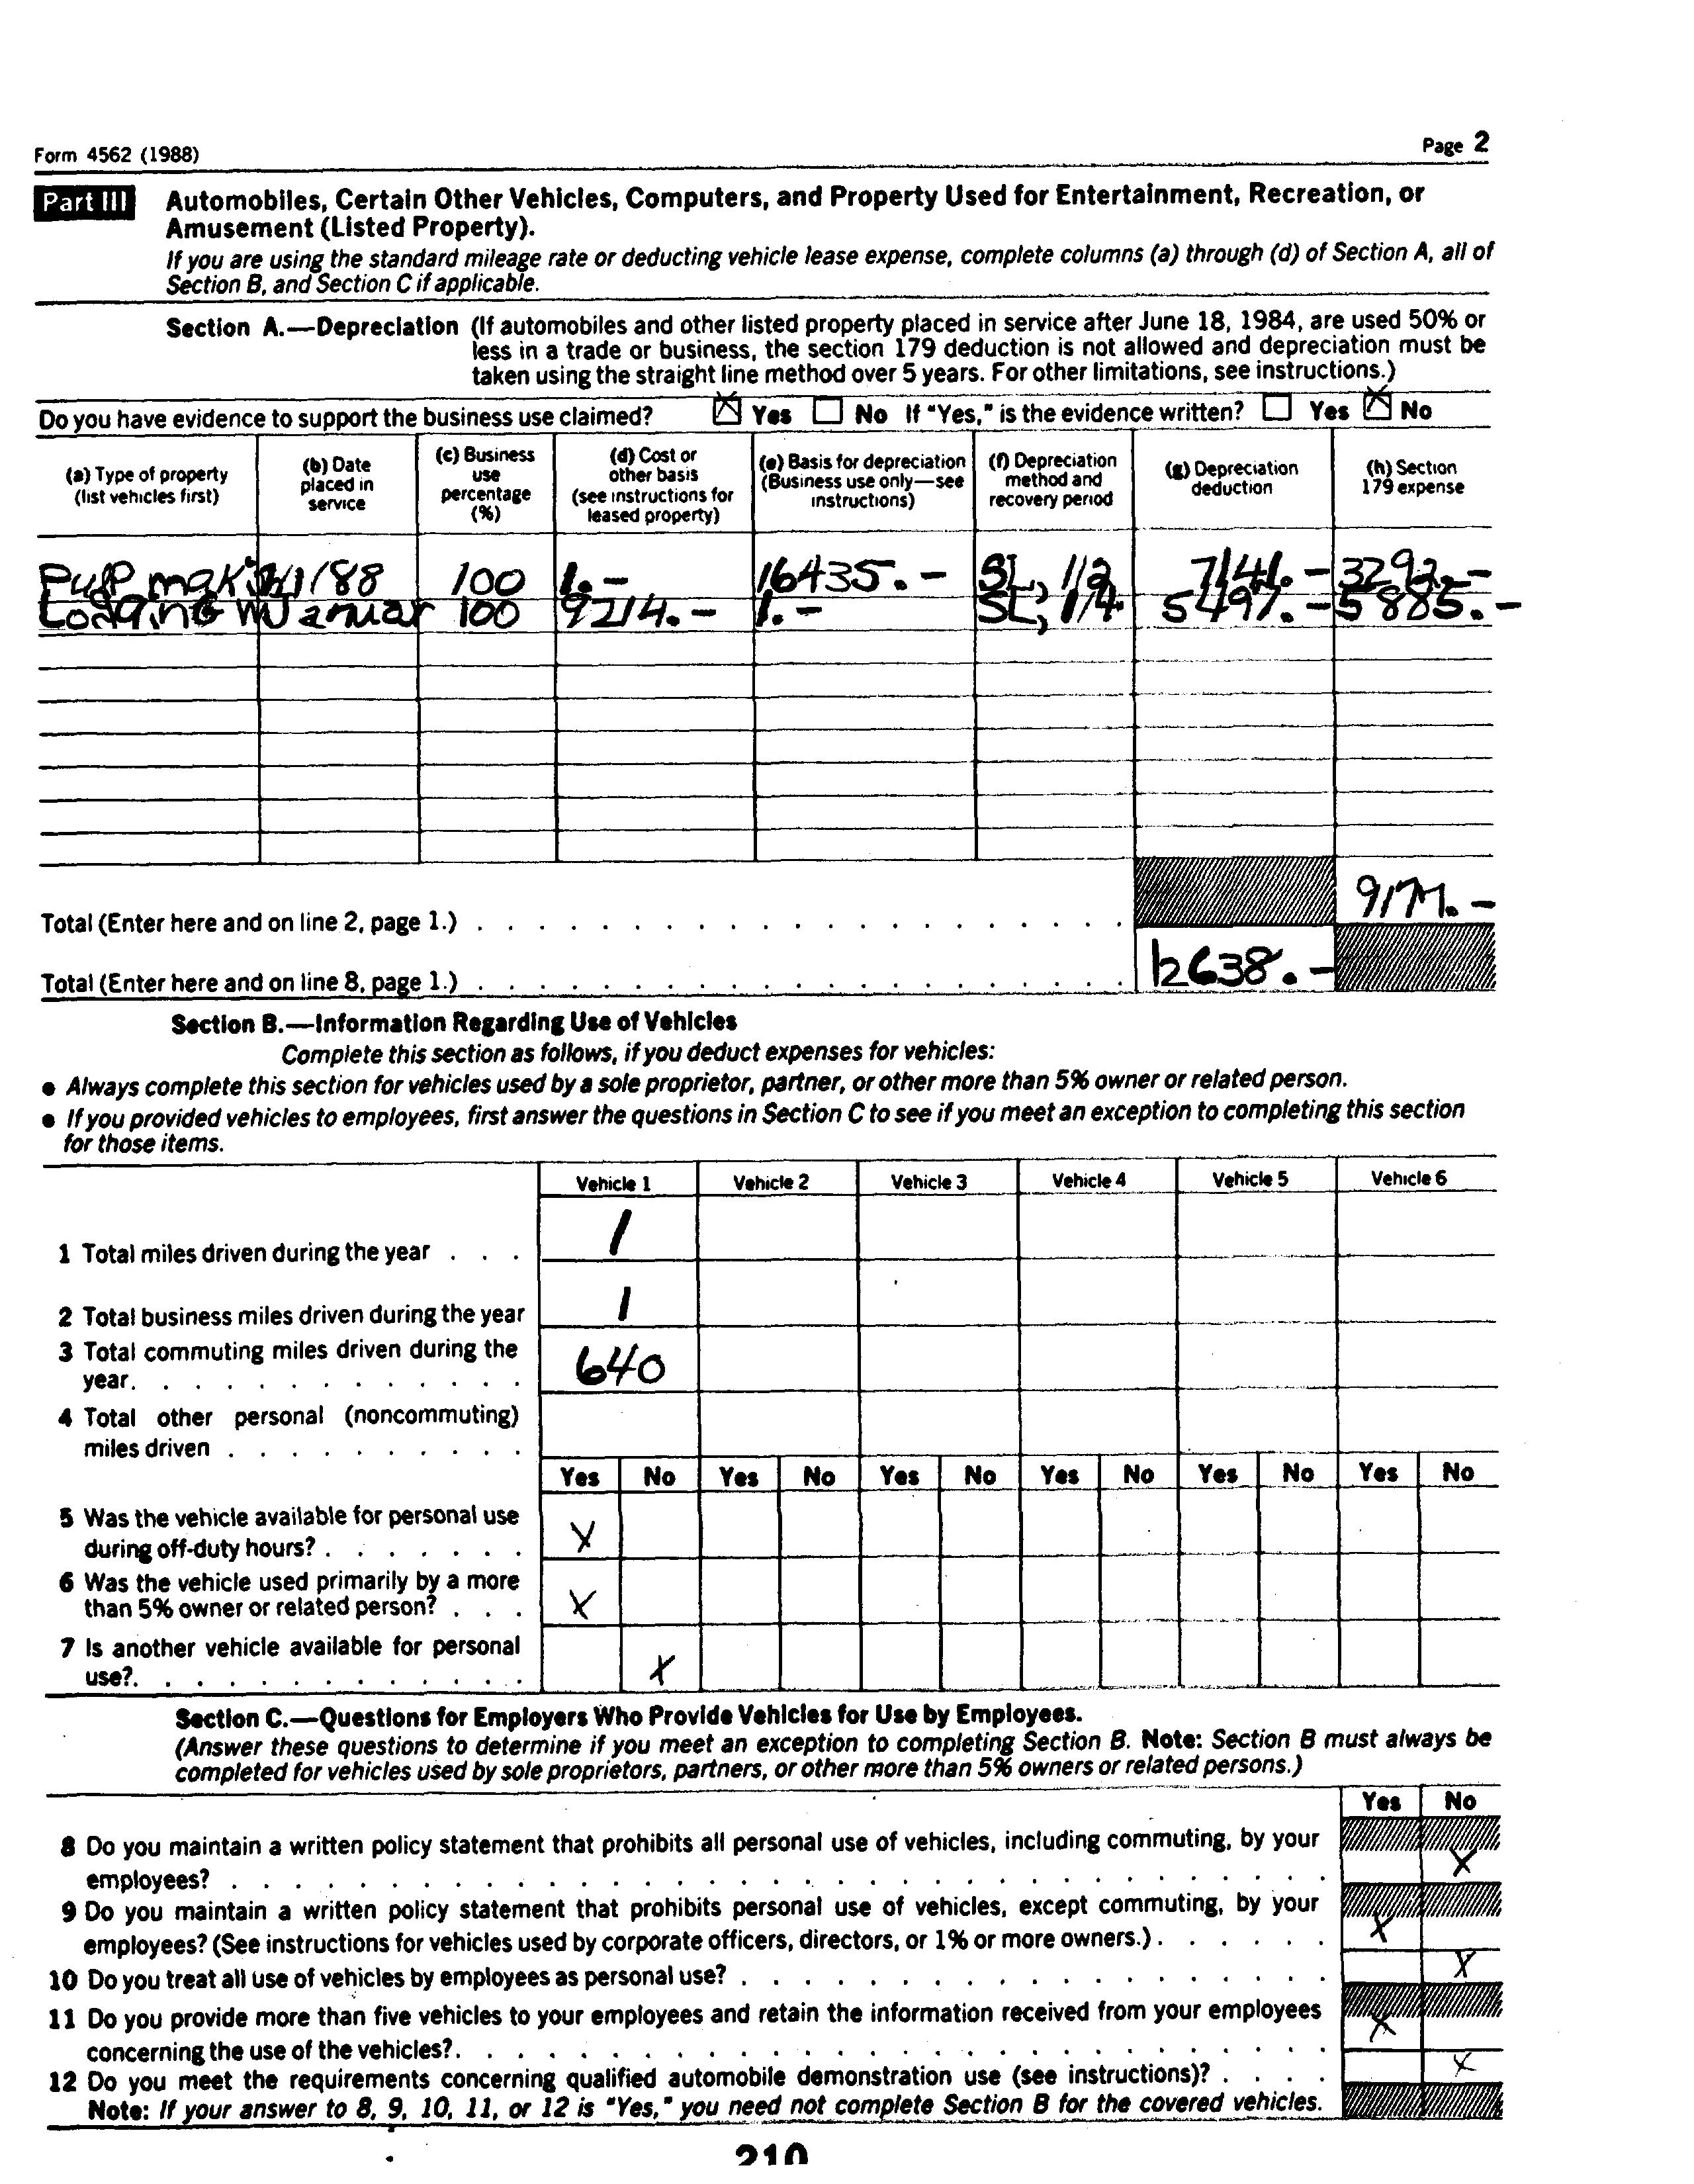 Form 4562 (1988)
Page 2
Part III Automobiles, Certain Other Vehicles, Computers, and Property Used for Entertainment, Recreation, or
Amusement (Listed Property).
If you are using the standard mileage rate or deducting vehicle lease expense, complete columns (a) through (d) of Section A, all of
Section B, and Section C if applicable.
Section A.—Depreciation (If automobiles and other listed property placed in service after June 18, 1984, are used 50% or
less in a trade or business, the section 179 deduction is not allowed and depreciation must be
taken using the straight line method over 5 years. For other limitations, see instructions.)
Do you have evidence to support the business use claimed? Yes No If "Yes," is the evidence written? Yes No
(a) Type of property (list vehicles first) (b) Date placed in service (c) Business use percentage (%) (d) Cost or other basis (see instructions for leased property) (e) Basis for depreciation (Business use only—see instructions) (f) Depreciation method and recovery period (g) Depreciation deduction (h) Section 179 expense
Pulp 1/88 100 1.- 16435.- SL, 1/2 7141.- 3292.-
Logging Januar 100 9214.- 1.- SL, 1/4 5497.- 5885.-
9177.-
Total (Enter here and on line 2, page 1.)
12638.-
Total (Enter here and on line 8, page 1.)
Section B.—Information Regarding Use of Vehicles
Complete this section as follows, if you deduct expenses for vehicles:
● Always complete this section for vehicles used by a sole proprietor, partner, or other more than 5% owner or related person.
● If you provided vehicles to employees, first answer the questions in Section C to see if you meet an exception to completing this section
for those items.
Vehicle 1 Vehicle 2 Vehicle 3 Vehicle 4 Vehicle 5 Vehicle 6
1 Total miles driven during the year . . . 1
2 Total business miles driven during the year 1
3 Total commuting miles driven during the
year. 640
4 Total other personal (noncommuting)
miles driven
Yes No Yes No Yes No Yes No Yes No Yes No
5 Was the vehicle available for personal use
during off-duty hours? X
6 Was the vehicle used primarily by a more
than 5% owner or related person? X
7 Is another vehicle available for personal
use? X
Section C.—Questions for Employers Who Provide Vehicles for Use by Employees.
(Answer these questions to determine if you meet an exception to completing Section B. Note: Section B must always be
completed for vehicles used by sole proprietors, partners, or other more than 5% owners or related persons.)
Yes No
8 Do you maintain a written policy statement that prohibits all personal use of vehicles, including commuting, by your
employees? X
9 Do you maintain a written policy statement that prohibits personal use of vehicles, except commuting, by your
employees? (See instructions for vehicles used by corporate officers, directors, or 1% or more owners.) X
10 Do you treat all use of vehicles by employees as personal use? X
11 Do you provide more than five vehicles to your employees and retain the information received from your employees
concerning the use of the vehicles? X
12 Do you meet the requirements concerning qualified automobile demonstration use (see instructions)? X
Note: If your answer to 8, 9, 10, 11, or 12 is "Yes," you need not complete Section B for the covered vehicles.
210